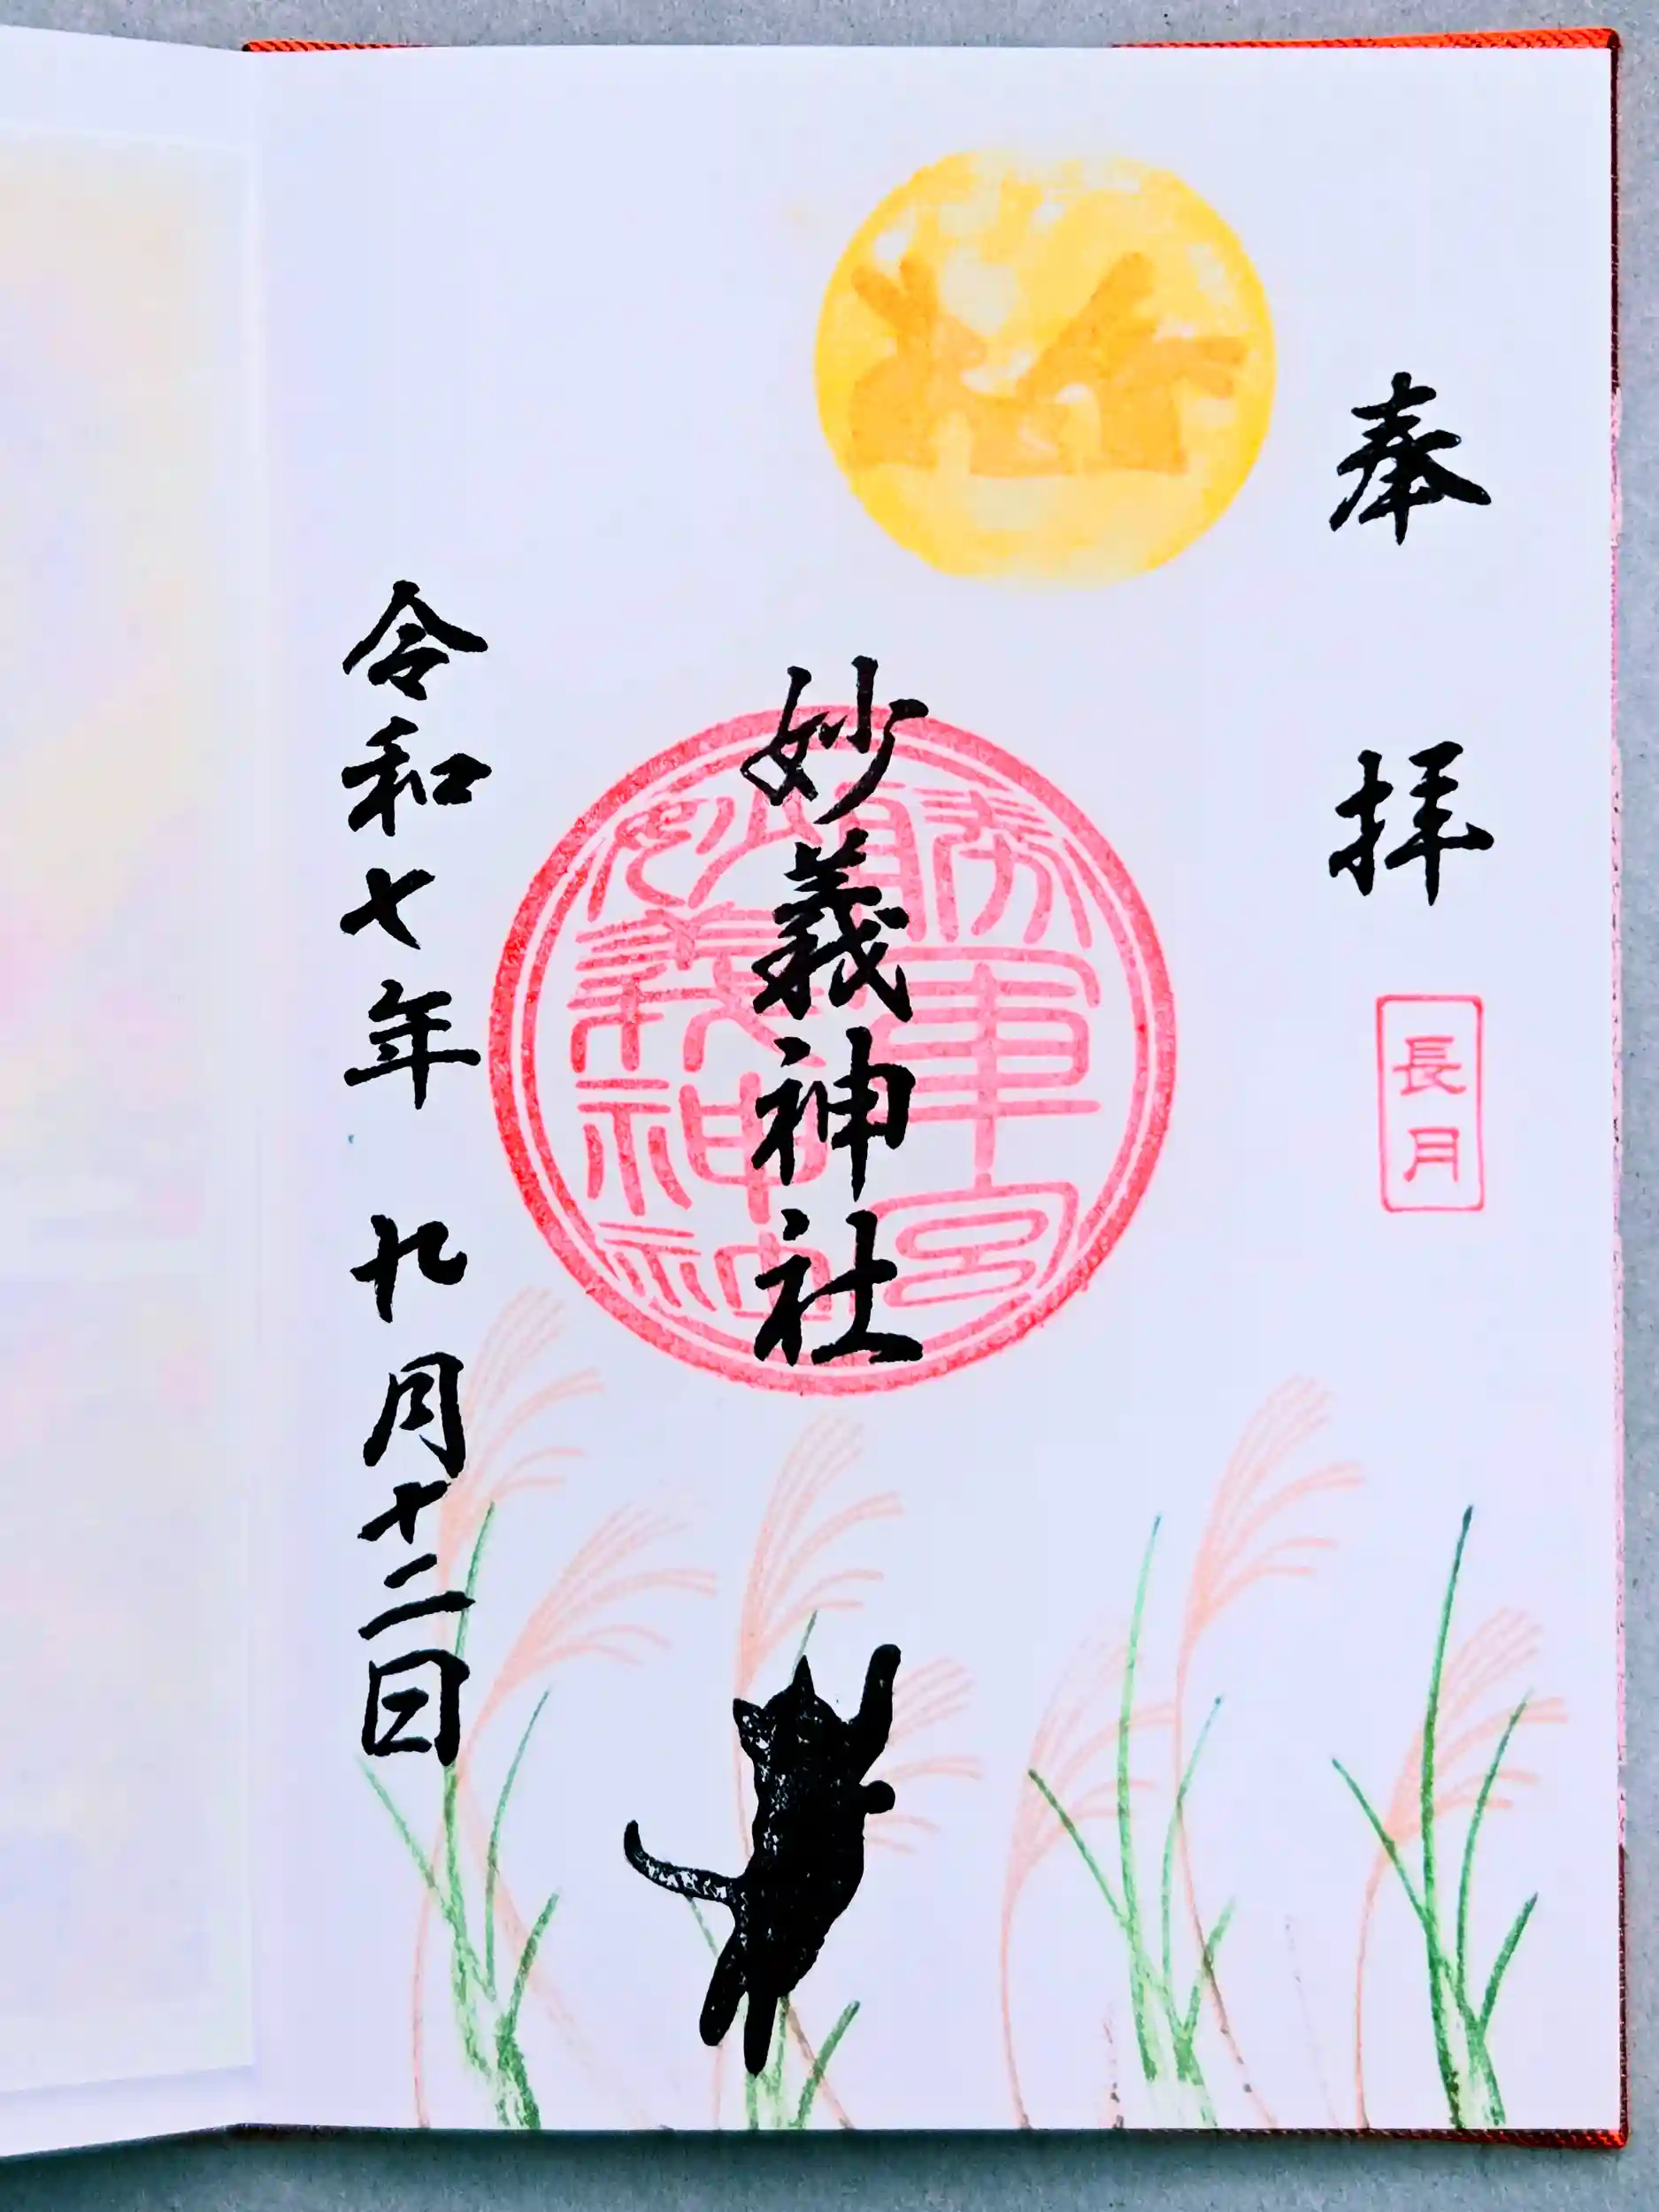 奉拝
長月
妙義神社
勝軍宮
妙義神社
令和七年 九月十二日